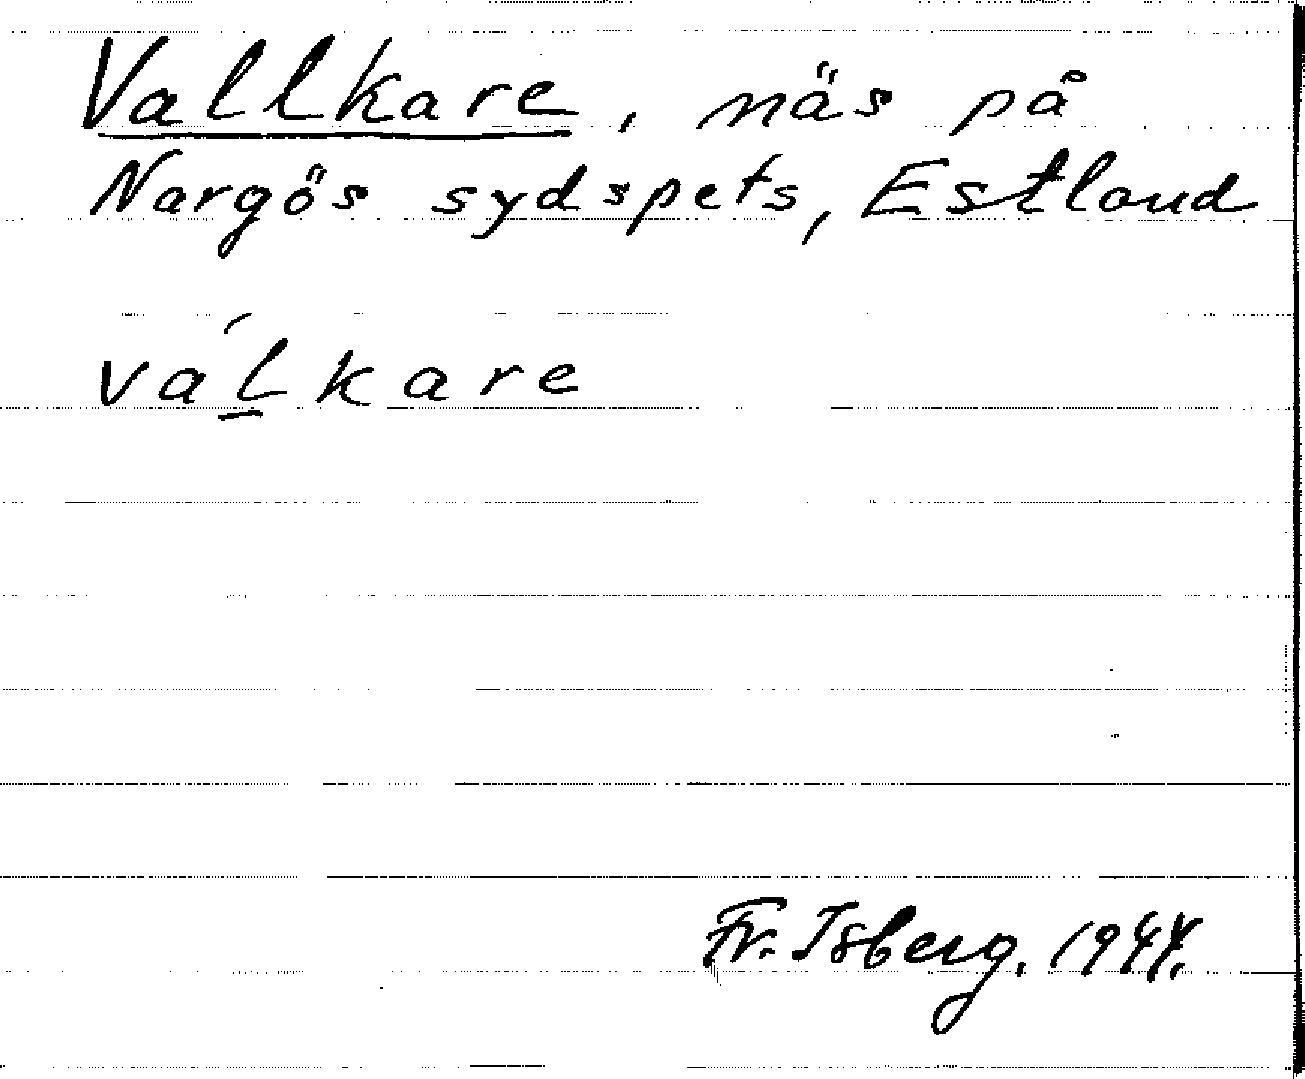 Vallkare, näs på
Nargös sydspets, Estland
vál̲kare
Fr. Isberg. 1944.